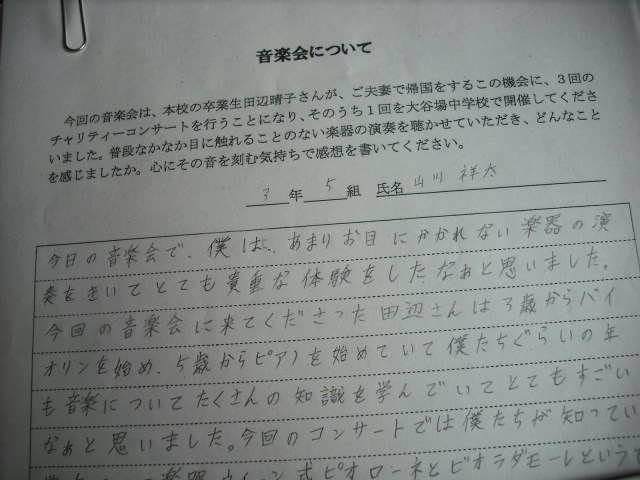 音楽会について
今回の音楽会は、本校の卒業生田辺晴子さんが、ご夫妻で帰国をするこの機会に、3回の
チャリティーコンサートを行うことになり、そのうち1回を大谷場中学校で開催してくださ
いました。普段なかなか目に触れることのない楽器の演奏を聴かせていただき、どんなこと
を感じましたか。心にその音を刻む気持ちで感想を書いてください。
3年5組 氏名 山川 祥太
今日の音楽会で、僕は、あまりお目にかかれない楽器の演
奏をきいてとても貴重な体験をしたなぁと思いました。
今回の音楽会に来てくださった田辺さんは3歳からバイ
オリンを始め、5歳からピアノを始めていて僕たちぐらいの年
も音楽についてたくさんの知識を学んでいてとてもすごい
なぁと思いました。今回のコンサートでは僕たちが知ってい
楽器 ウィーン式ピオローネとビオラダモーレという